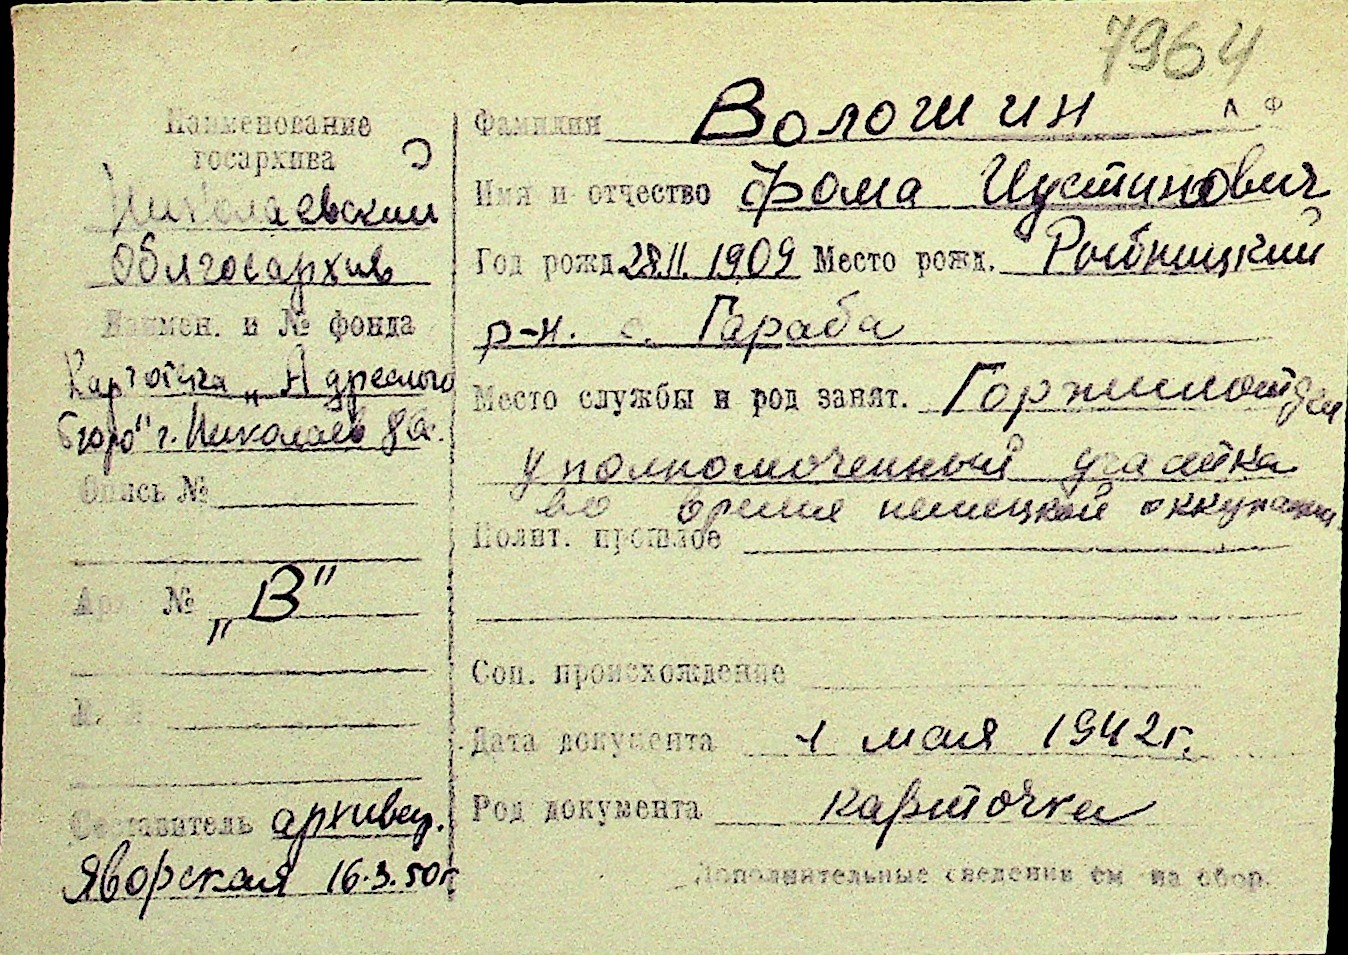 7964
Наименование
госархива
Николаевский
Облгосархив
Наимен. и № фонда
Картотека „Адресного
бюро" г. Николаев
Опись №
Арх №
„В"
Составитель архивар.
Яворская 16.3.50г
Фамилия Волошин
Имя и отчество Фома Иустинович
Год рожд 28.II. 1909 Место рожд. Рыбницкий
р-н. с. Гараба
Место службы и род занят. Горжилотдел
уполномоченный участка
во время немецкой оккупации
Полит. прошлое
Соц. происхождение
Дата документа 1 мая 1942г.
Род документа карточка
Дополнительные сведения см на обор.